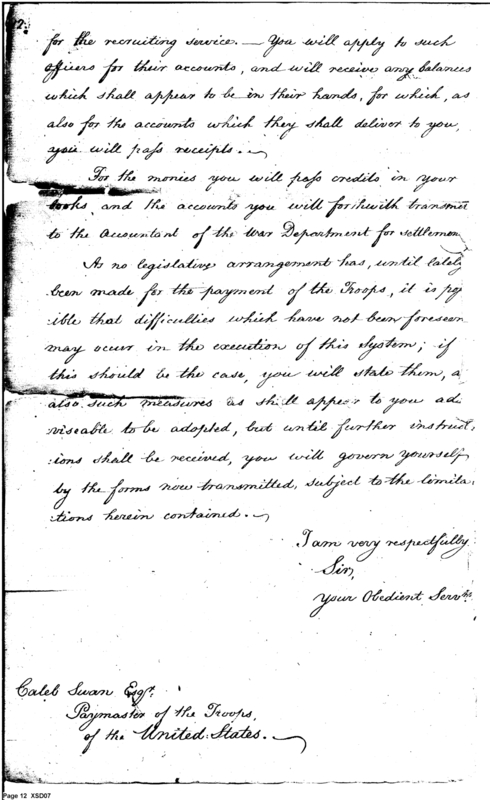 12.
for the recruiting service. — You will apply to such
officers for their accounts, and will receive any balances
which shall appear to be in their hands, for which, as
also for the accounts which they shall deliver to you,
you will pass receipts. —
For the monies you will pass credits in your
books, and the accounts you will forthwith transmit
to the Accountant of the War Department for settlement
As no legislative arrangement has, until lately
been made for the payment of the Troops, it is pos
:ible that difficulties which have not been foreseen
may occur in the execution of this System; if
this should be the case, you will state them, a
also such measures as shall appear to you ad
viseable to be adopted, but until further instruct,
:ions shall be received, you will govern yourself
by the forms now transmitted, subject to the limita,
:tions herein contained. —
I am very respectfully
Sir,
Your Obedient Servt.
Caleb Swan Esqr.
Paymaster of the Troops,
of the United States. —
Page 12 XSD07